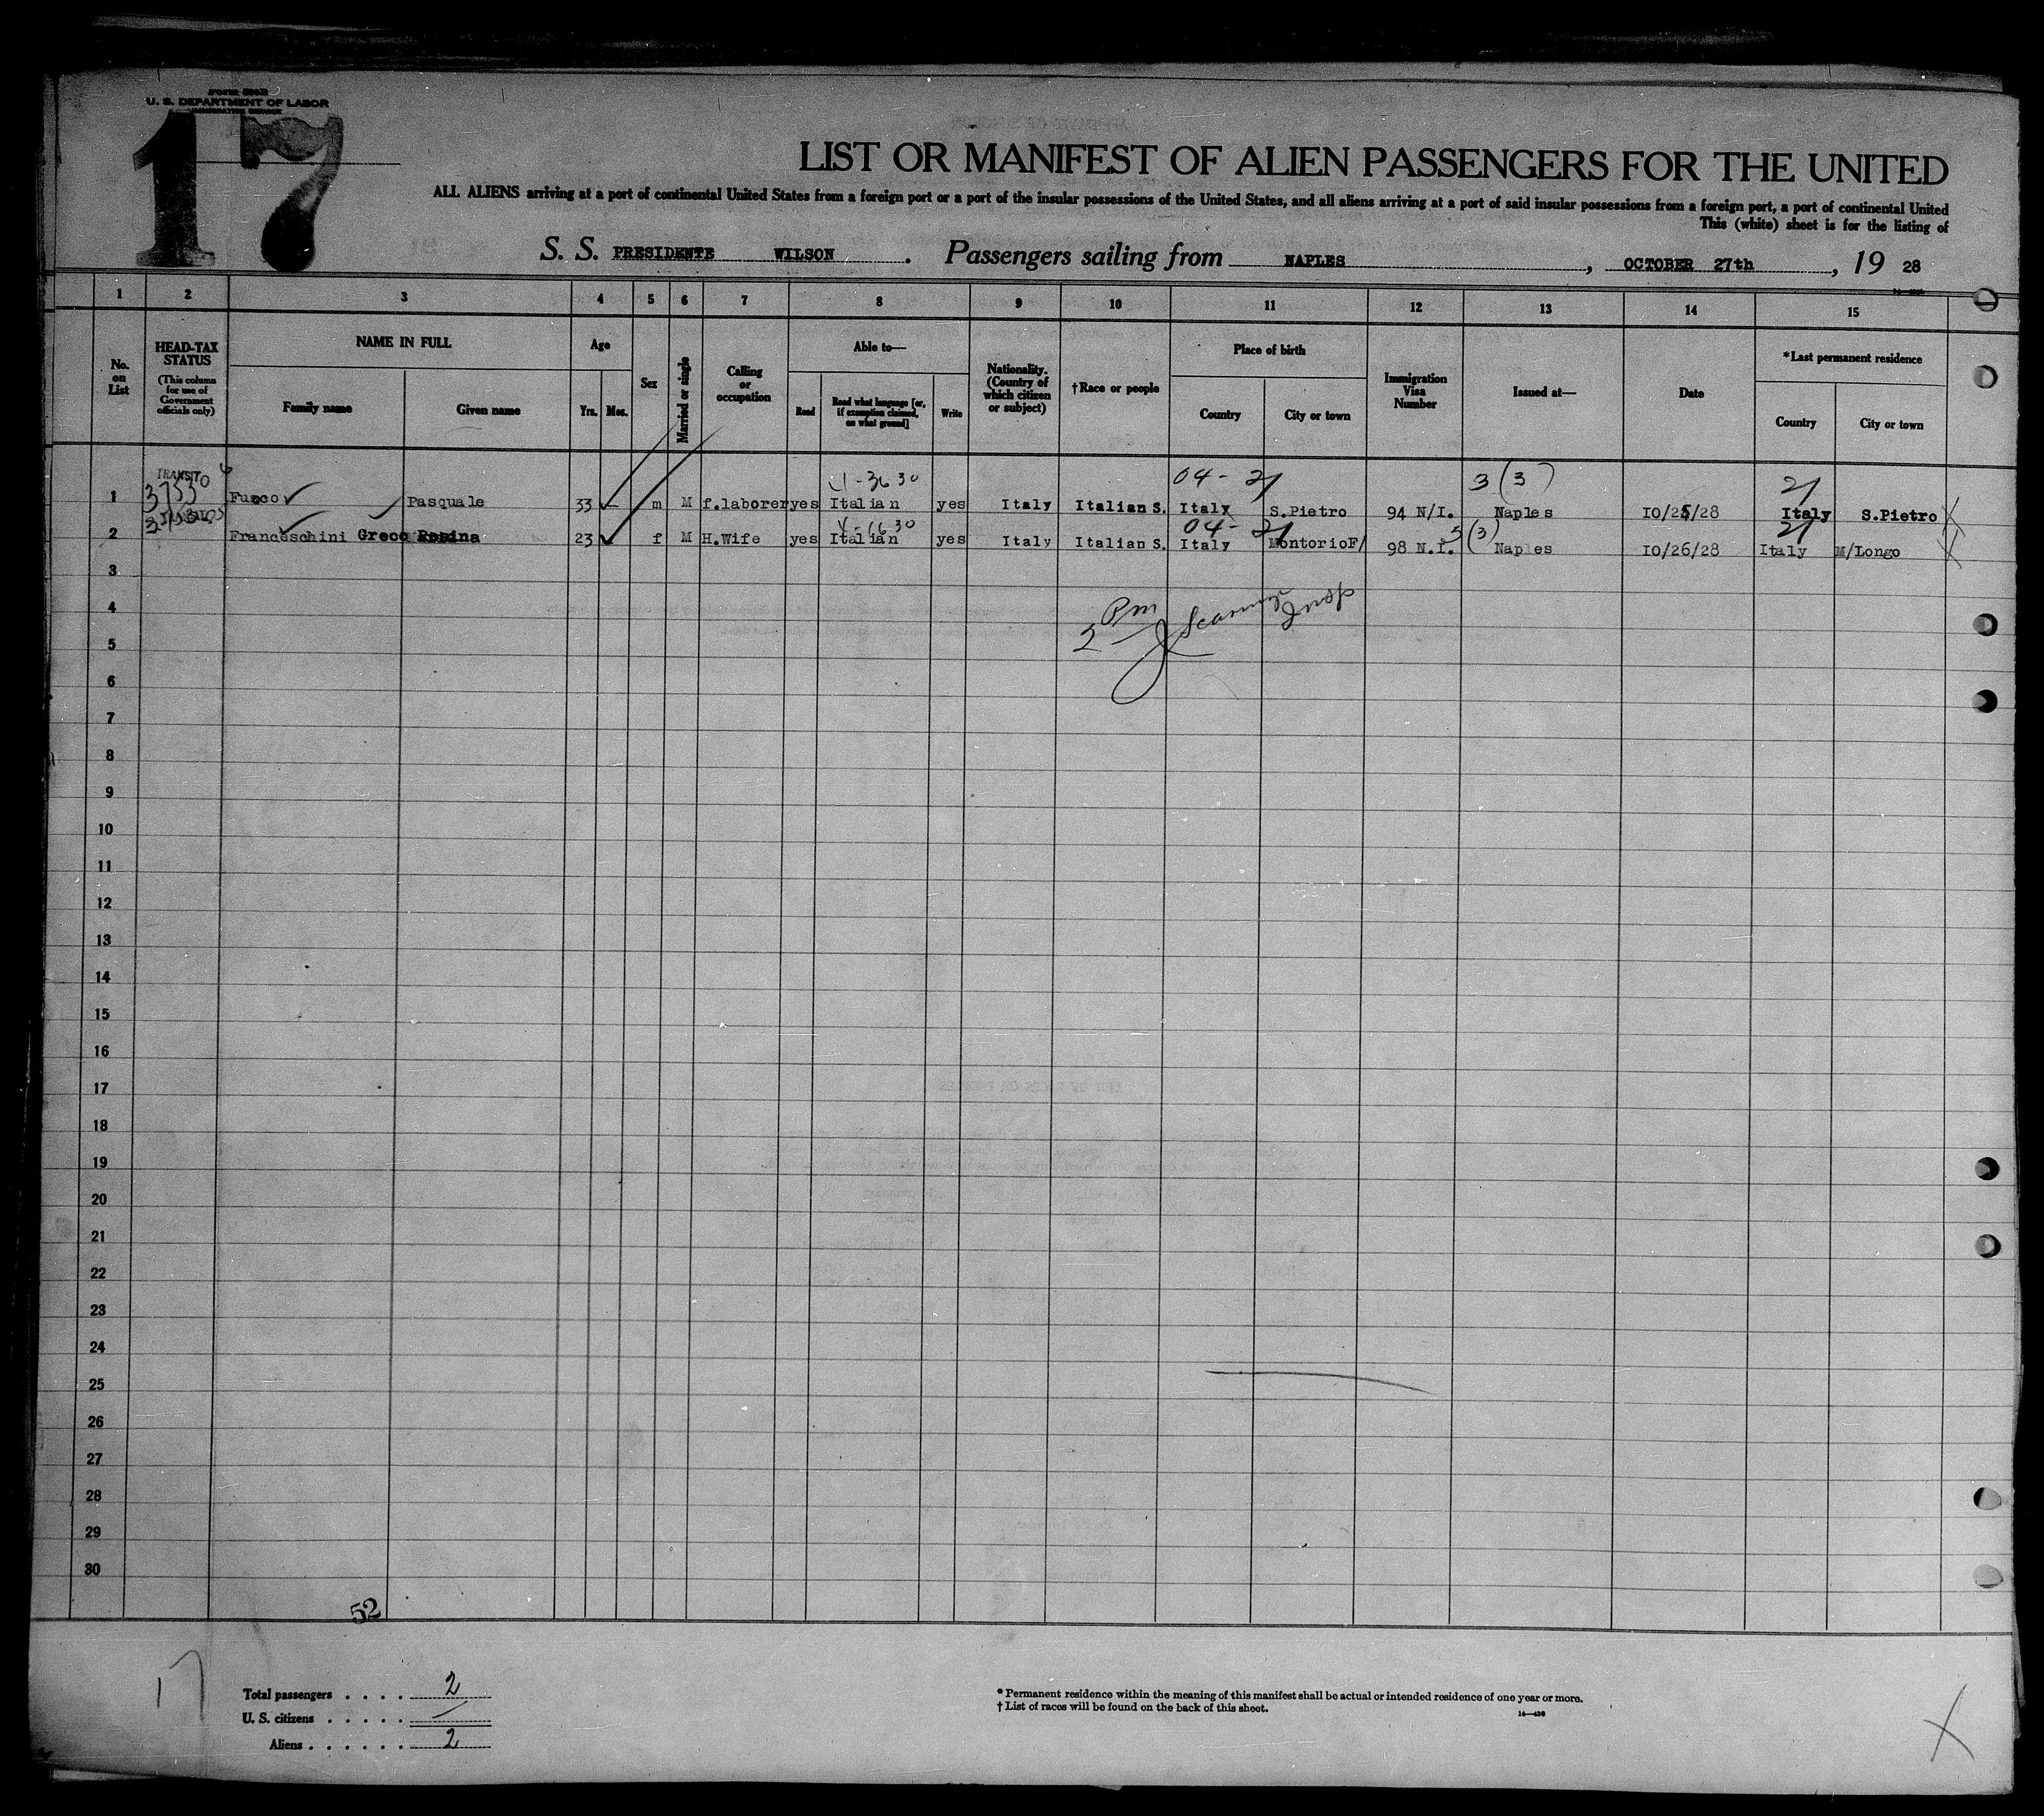 Form 500B
U. S. DEPARTMENT OF LABOR
IMMIGRATION SERVICE
17
LIST OR MANIFEST OF ALIEN PASSENGERS FOR THE UNITED
ALL ALIENS arriving at a port of continental United States from a foreign port or a port of the insular possessions of the United States, and all aliens arriving at a port of said insular possessions from a foreign port, a port of continental United
This (white) sheet is for the listing of
S. S. PRESIDENTE WILSON . Passengers sailing from NAPLES , OCTOBER 27th , 19 28
1 2 3 4 5 6 7 8 9 10 11 12 13 14 15
No. on List
HEAD-TAX STATUS
(This column for use of Government officials only)
NAME IN FULL
Family name Given name
Age
Yrs. Mos.
Sex
Married or single
Calling or occupation
Able to—
Read
Read what language [or, if exemption claimed, on what ground]
Write
Nationality. (Country of which citizen or subject)
†Race or people
Place of birth
Country City or town
Immigration Visa Number
Issued at—
Date
*Last permanent residence
Country City or town
TRANSIT 4-3630 04-21 3(3) 21
1 37530 Fusco Pasquale 33 m M f.laborer yes Italian yes Italy Italian S. Italy S.Pietro 94 N/I. Naples 10/25/28 Italy S.Pietro X
4-6630 04-21 5(3) 21
2 Franceschini Greco Rosina 23 f M H.Wife yes Italian yes Italy Italian S. Italy MontorioF/ 98 N.I. Naples 10/26/28 Italy M/Longo X
3
4
2 Pm Insp
5
6
7
8
9
10
11
12
13
14
15
16
17
18
19
20
21
22
23
24
25
26
27
28
29
30
52
17
Total passengers . . . . 2
U. S. citizens . . . . . —
Aliens . . . . . . 2
* Permanent residence within the meaning of this manifest shall be actual or intended residence of one year or more.
† List of races will be found on the back of this sheet.
14—436
X